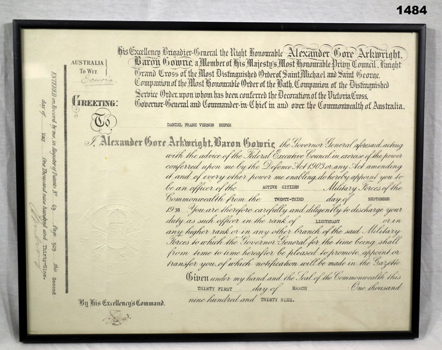 1484
His Excellency Brigadier-General the Right Honourable Alexander Gore Arkwright,
Baron Gowrie, a Member of His Majesty's Most Honourable Privy Council, Knight
Grand Cross of the Most Distinguished Order of Saint Michael and Saint George,
Companion of the Most Honorable Order of the Bath, Companion of the Distinguished
Service Order, upon whom has been conferred the Decoration of the Victoria Cross,
Governor-General and Commander-in-Chief in and over the Commonwealth of Australia.
AUSTRALIA
To Wit
Gowrie
GREETING:
To DANIEL FRANK VERNON
I, Alexander Gore Arkwright, Baron Gowrie, the Governor General aforesaid, acting
with the advice of the Federal Executive Council in exercise of the power
conferred upon me by the Defence Act 1903, or any Act amending
it and of every other power me enabling, do hereby appoint you to
be an officer of the ACTIVE CITIZEN Military Forces of the
Commonwealth from the TWENTY-THIRD day of SEPTEMBER
1938 You are therefore carefully and diligently to discharge your
duty as such officer in the rank of LIEUTENANT or in
any higher rank or in any other branch of the said Military
Forces to which the Governor General for the time being shall
from time to time hereafter be pleased to promote, appoint or
transfer you, of which notification will be made in the Gazette
Given under my hand and the Seal of the Commonwealth this
THIRTY FIRST day of MARCH One thousand
nine hundred and THIRTY NINE.
By His Excellency's Command.